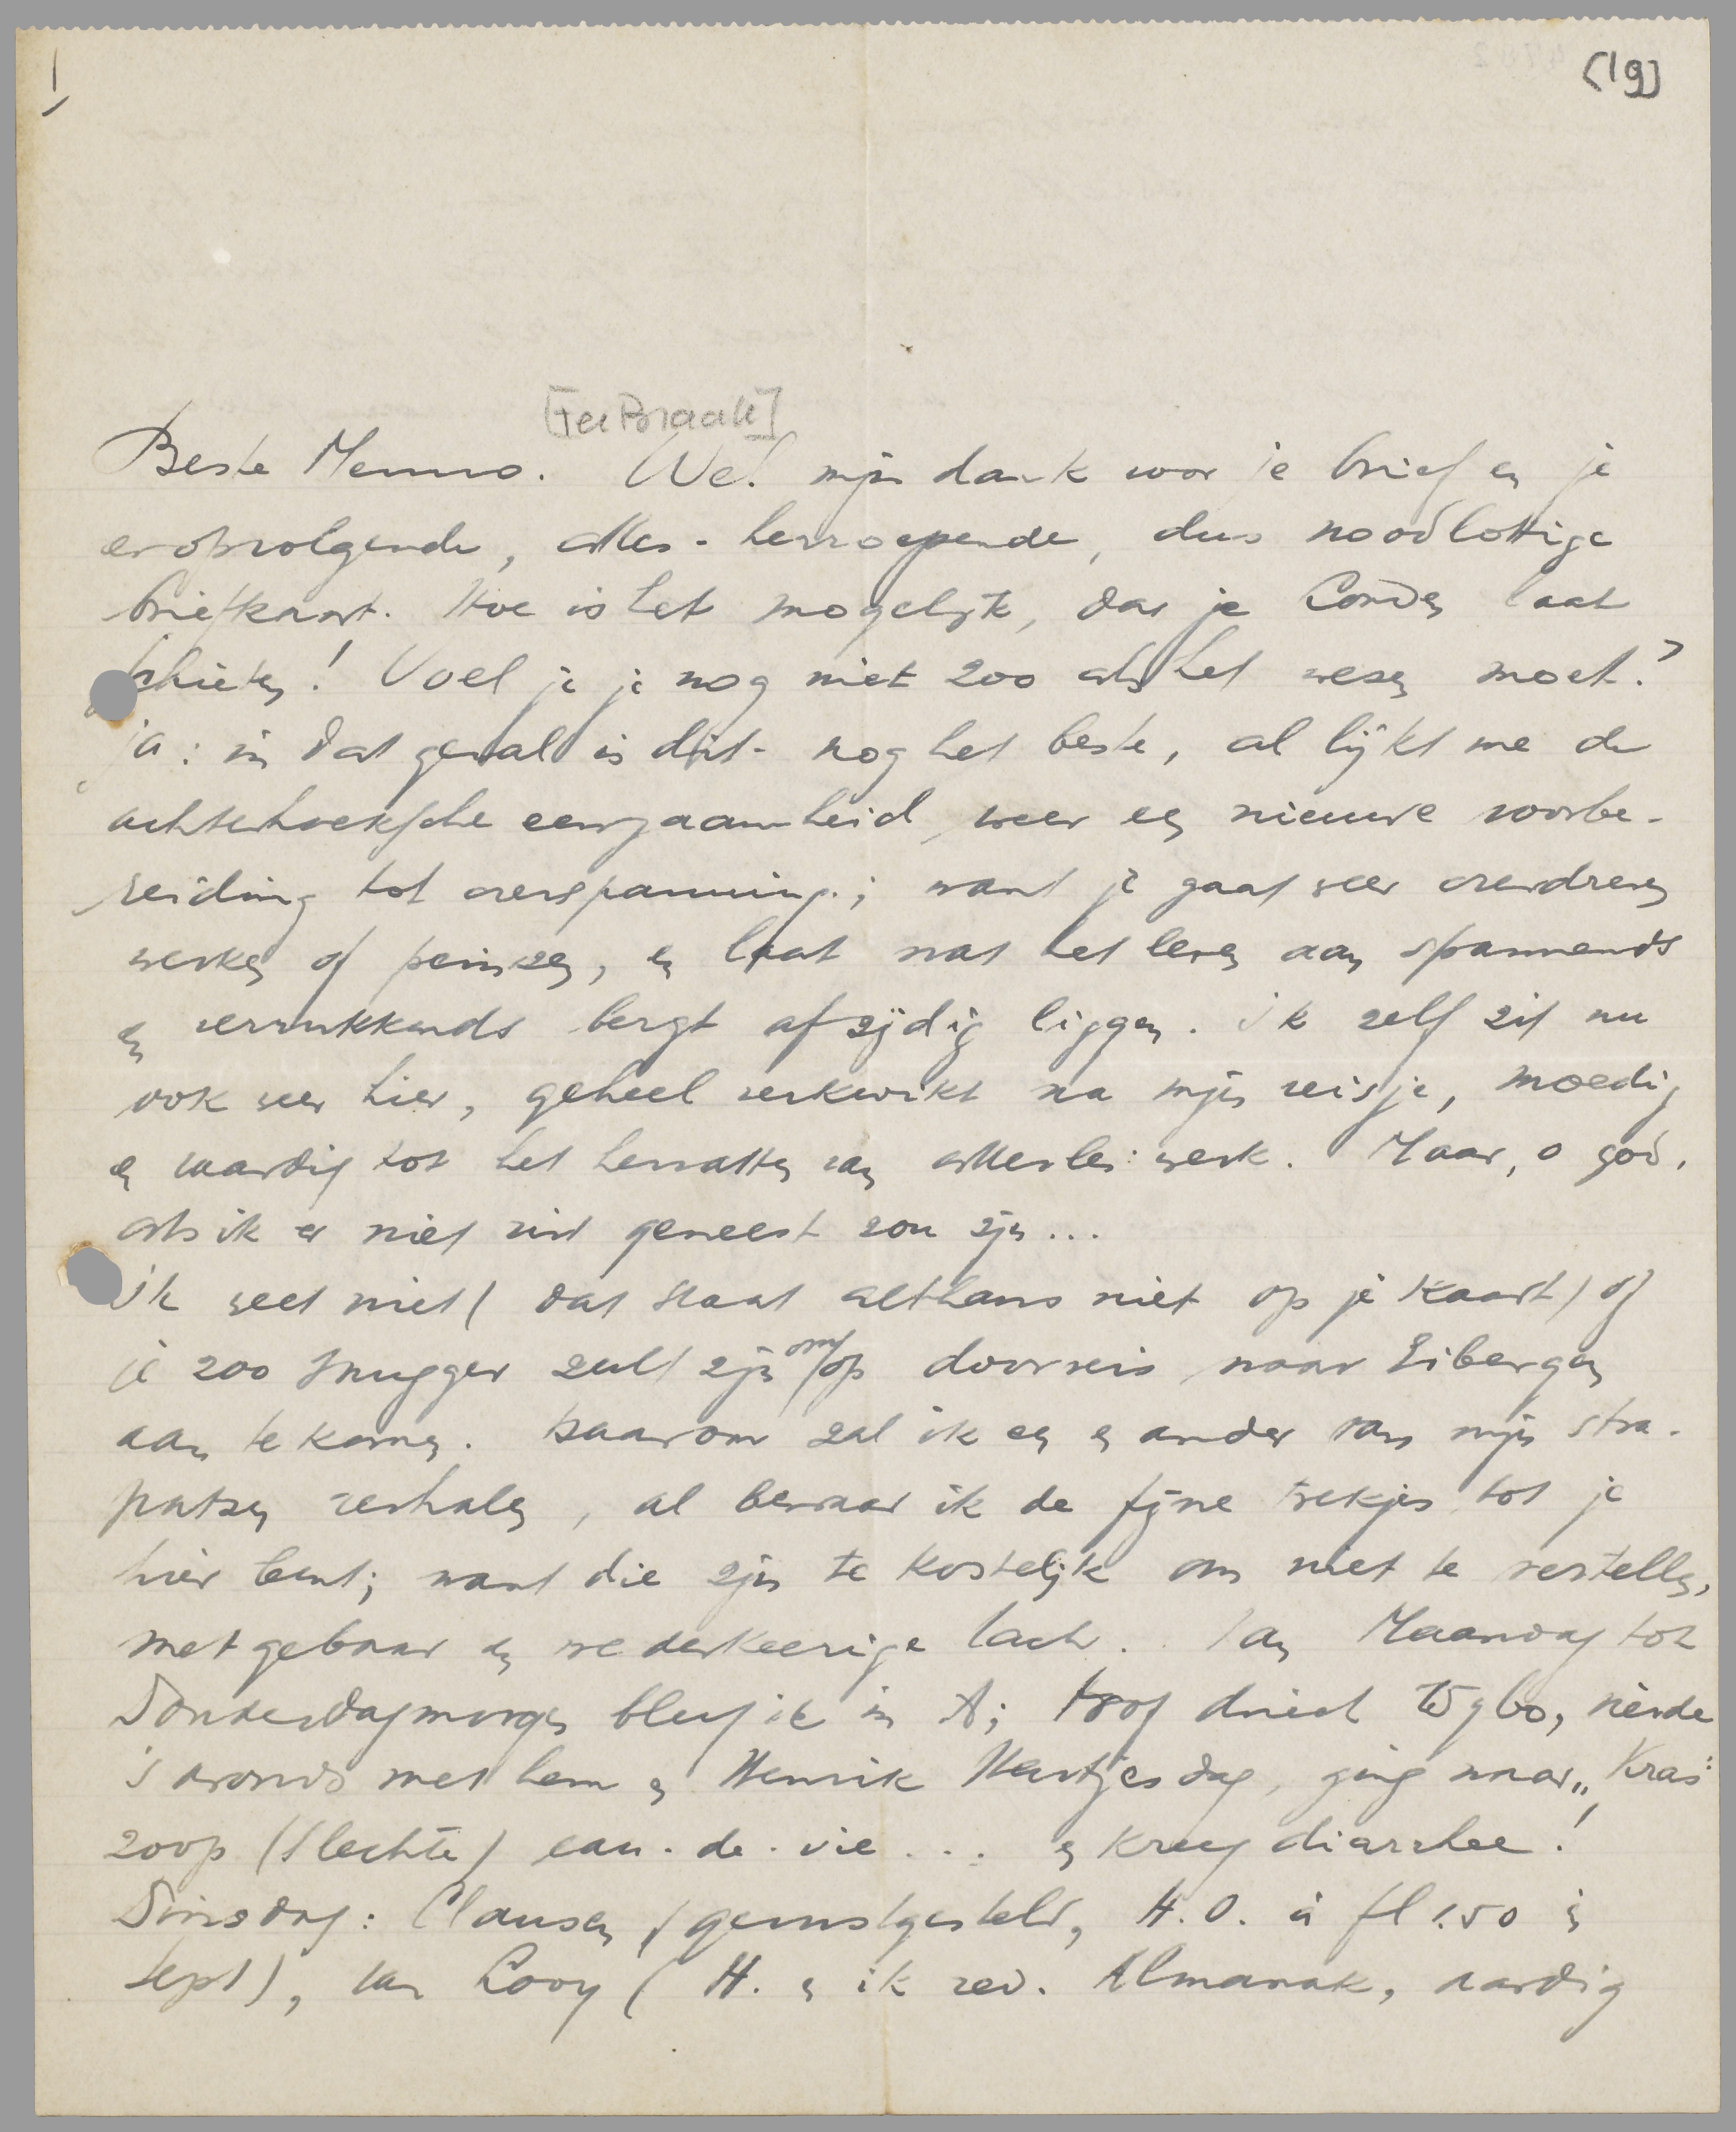 1
(19)
[Ter Braak]
Beste Menno. Wel mijn dank voor je brief en je
eropvolgende, alles-herroepende, dus noodlottige
briefkaart. Hoe is het mogelijk, dat je Conden laat
schieten! Voel je je nog niet zoo als het wezen moet?
ja: in dat geval is dit nog het beste, al lijkt me de
achterhoeksche eenzaamheid weer een nieuwe voorbe-
reiding tot overspanning; want je gaat weer overdreven
werken of peinzen, en laat wat het leven aan spannends
en verrukkends bergt afzijdig liggen. Ik zelf zit nu
ook weer hier, geheel verkwikt na mijn reisje, moedig
en vaardig tot het hervatten van allerlei werk. Maar, o god,
als ik er niet uit geweest zou zijn...
Ik weet niet (dat staat althans niet op je kaart) of
je zoo snugger zult zijn om op doorreis naar Eibergen
aan te komen. Daarom zal ik een en ander van mijn stra-
patzen verhalen, al bewaar ik de fijne trekjes tot je
hier bent; want die zijn te kostelijk om niet te vertellen,
met gebaar en wederkeerige lach. Van Maandag tot
Donderdagmorgen bleef ik in A; trof direct Wybo, vierde
's avonds met hem en Henrik Hartjesdag, ging naar "Kras"
zoop (slechte) eau-de-vie... en kreeg diarrhee!
Dinsdag: Clausen (gerustgesteld, H.O. à fl 1.50 in
Sept), van Looy (H. en ik red. Almanak, aardig